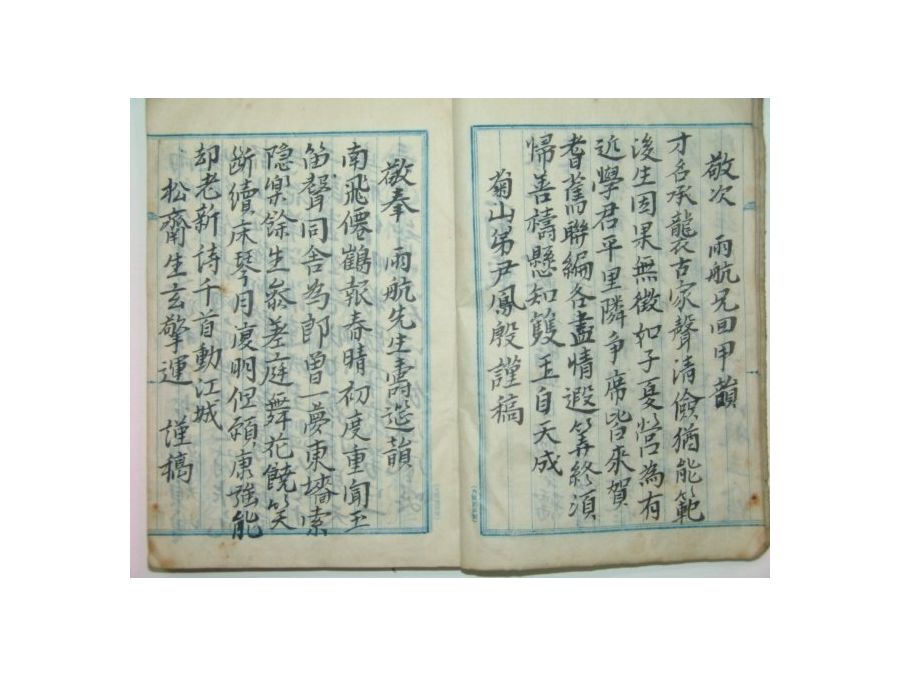 敬次　雨航兄回甲韻
才名承襲古家聲清儉猶能範
後生因果無徵知子夏營為有
近學君平里隣争席皆来賀
耆舊聯編各盡情遐筭終須
帰善禱懸知雙玉自天成
菊山弟尹鳳殷謹稿
敬奉　雨航先生壽筵韻
南飛僊鶴報春晴初度重聞玉
笛聲同舎為郎曾一夢東墻索
隠樂餘生叅差庭舞花饒笑
断續床琴月復明但願康強能
却老新詩千首動江城
松齋生玄擎運　謹稿